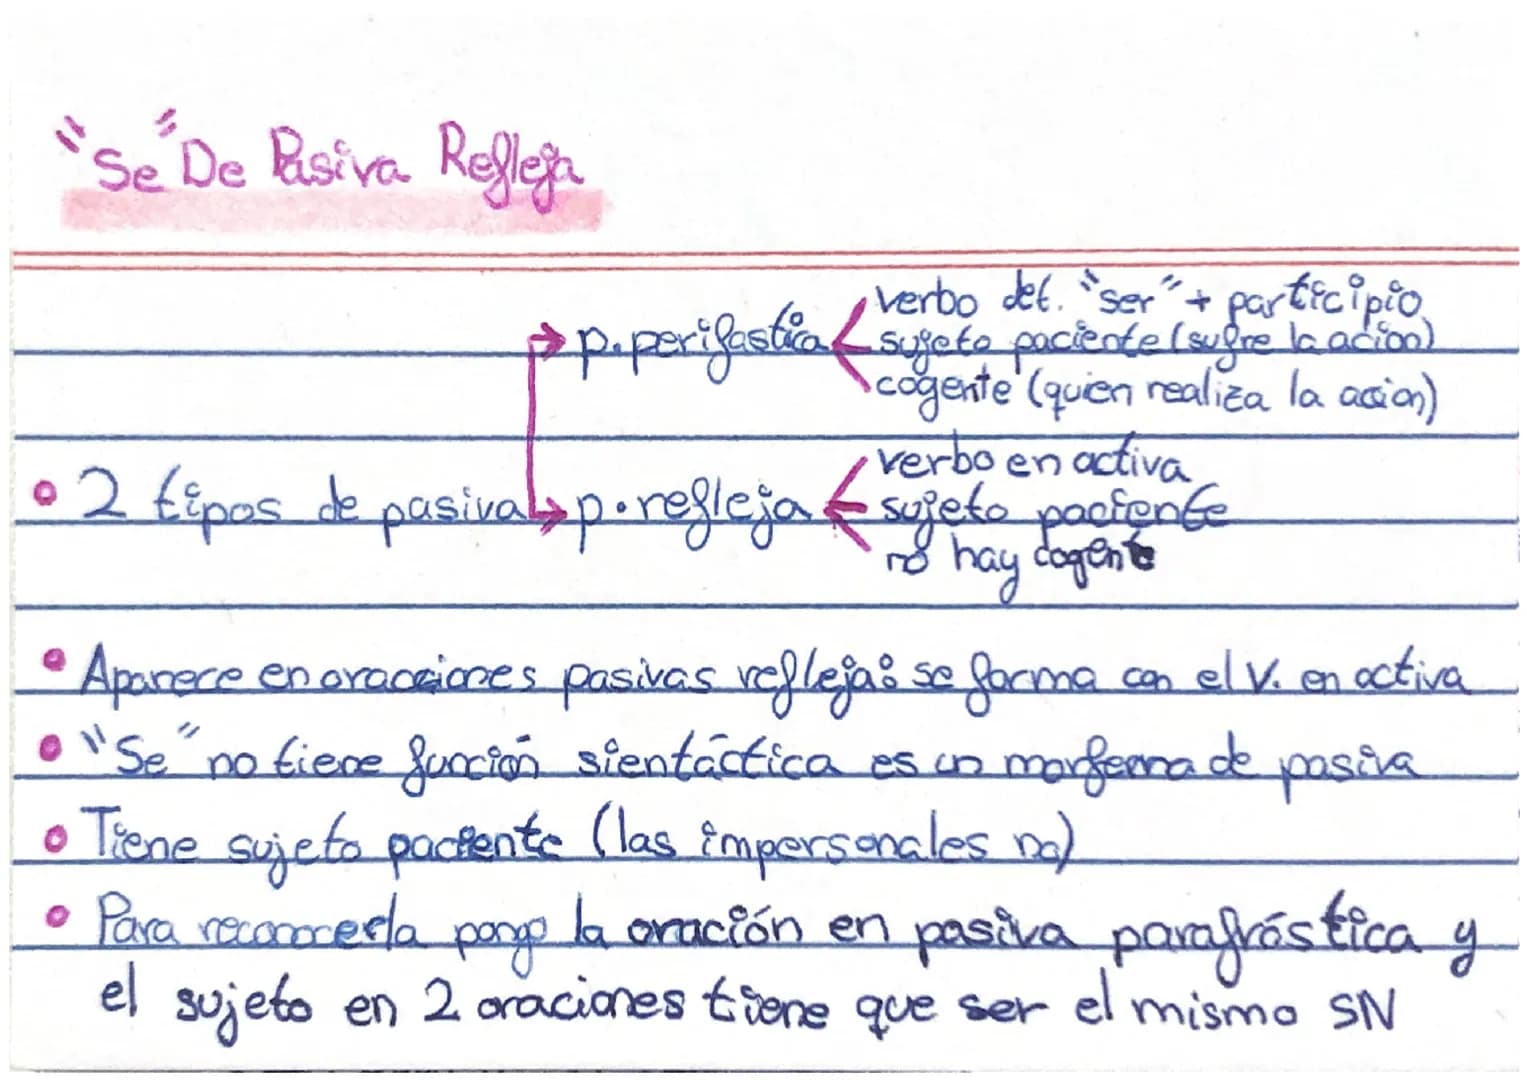 "Se" De Pasiva Refleja
verbo det. "ser" + participio
→ p. perifastica < sujeto paciente (sufre la acion)
cogente (quien realiza la acion)
verbo en activa
• 2 tipos de pasiva → p. refleja < sujeto paciente
no hay cogente
• Aparece en oracciones pasivas refleja: se forma con el V. en activa
• "Se" no tiene función sientáctica es un morfema de pasiva
• Tiene sujeto paciente (las impersonales no)
• Para reconocerla pongo la oración en pasiva parafrástica y
el sujeto en 2 oraciones tiene que ser el mismo SN